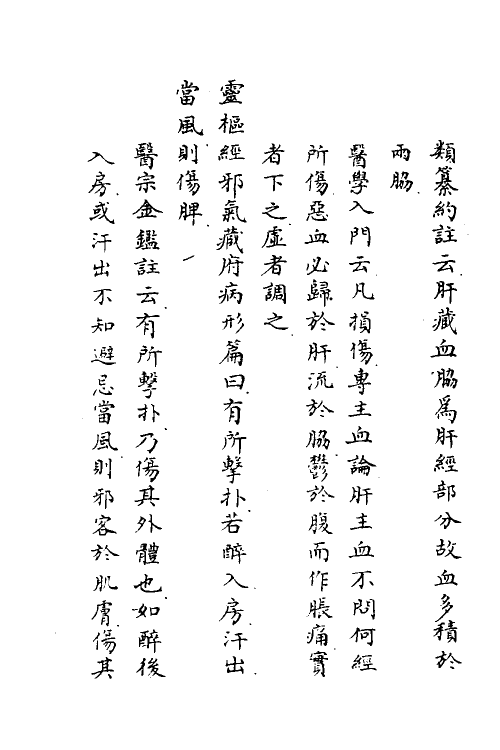 類纂約註云肝藏血脇為肝經部分故血多積於
兩脇
醫學入門云凡損傷專主血論肝主血不問何經
所傷惡血必歸於肝流於脇鬱於腹而作脹痛實
者下之虛者調之
靈樞經邪氣藏府病形篇曰有所擊扑若醉入房汗出
當風則傷脾
醫宗金鑑註云有所擊扑乃傷其外體也如醉後
入房或汗出不知避忌當風則邪客於肌膚傷其